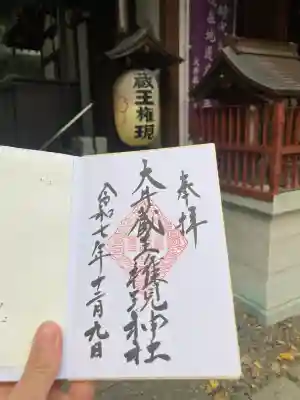 蔵王権現
奉拝
大井蔵王権現神社
令和七年十二月九日